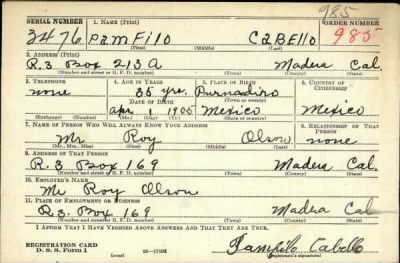 985
SERIAL NUMBER 1. NAME (Print) ORDER NUMBER
3476 Pamfilo Cabello 985
(First) (Middle) (Last)
2. ADDRESS (Print)
R.3 Box 213A Madera Cal.
(Number and street or R. F. D. number) (Town) (County) (State)
3. TELEPHONE 4. AGE IN YEARS 5. PLACE OF BIRTH 6. COUNTRY OF CITIZENSHIP
none 35 yrs. Purnadiro
DATE OF BIRTH (Town or county)
Apr 1 1905 Mexico Mexico
(Exchange) (Number) (Mo.) (Day) (Yr.) (State or country)
7. NAME OF PERSON WHO WILL ALWAYS KNOW YOUR ADDRESS 8. RELATIONSHIP OF THAT PERSON
Mr Roy Olson none
(Mr., Mrs., Miss) (First) (Middle) (Last)
9. ADDRESS OF THAT PERSON
R. 3 Box 169 Madera Cal.
(Number and street or R. F. D. number) (Town) (County) (State)
10. EMPLOYER'S NAME
Mr Roy Olson
11. PLACE OF EMPLOYMENT OR BUSINESS
R3. Box 169 Madera Cal
(Number and street or R. F. D. number) (Town) (County) (State)
I AFFIRM THAT I HAVE VERIFIED ABOVE ANSWERS AND THAT THEY ARE TRUE.
REGISTRATION CARD
D. S. S. Form 1 16—17105 Pamfilo Cabello
(Registrant's signature)